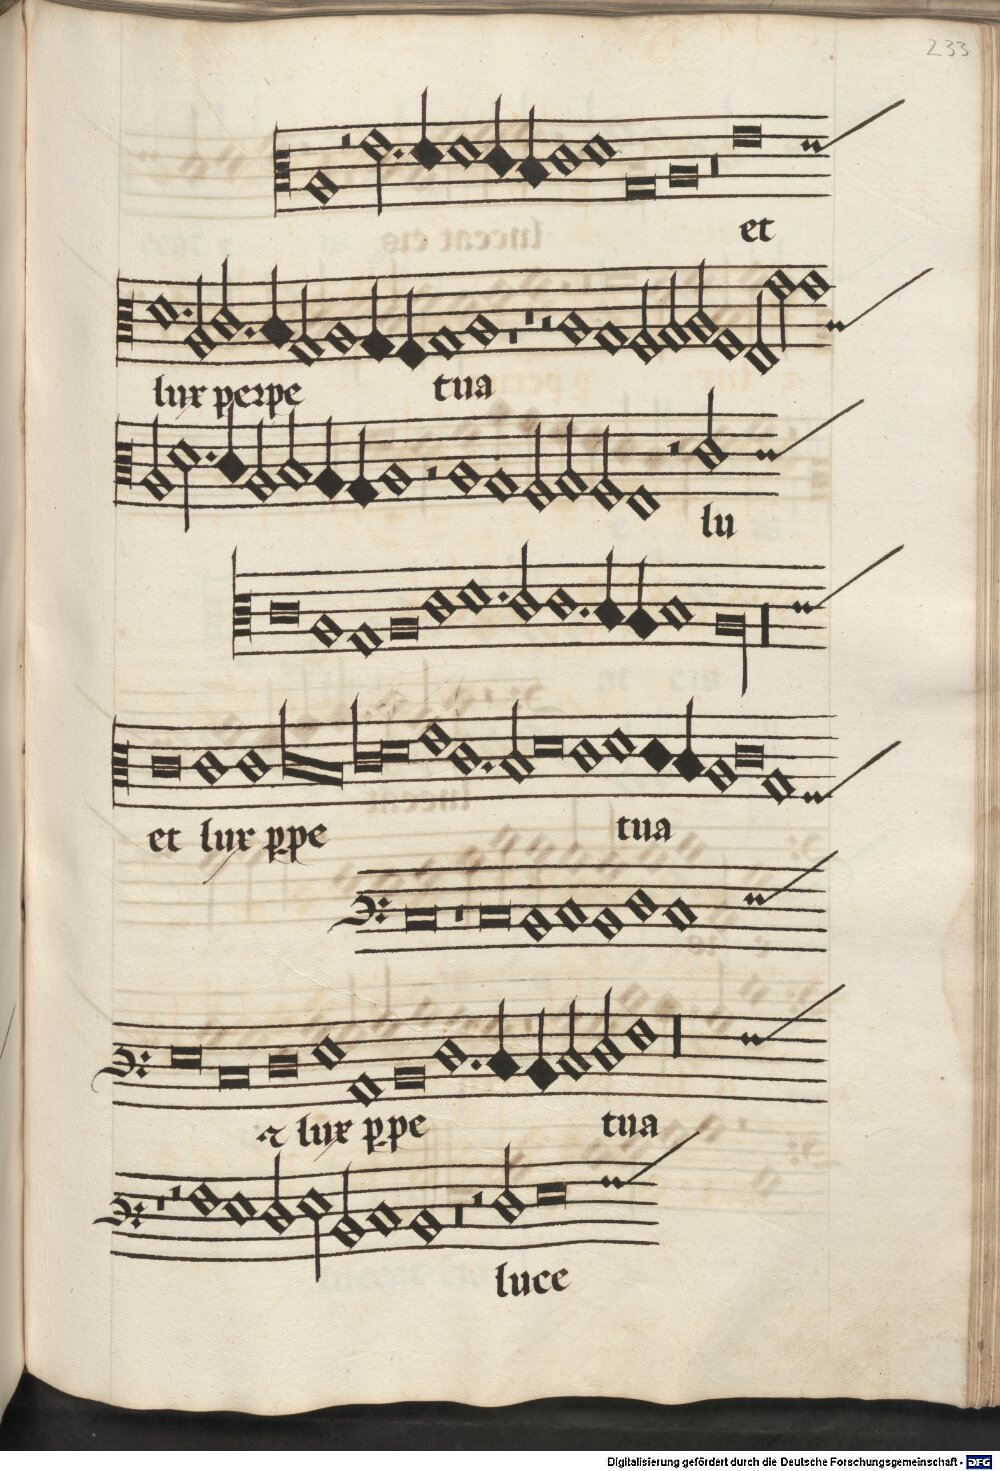 233
et
lux perpe tua
lu
et lux ppe tua
lux ppe tua
luce
Digitalisierung gefördert durch die Deutsche Forschungsgemeinschaft - DFG